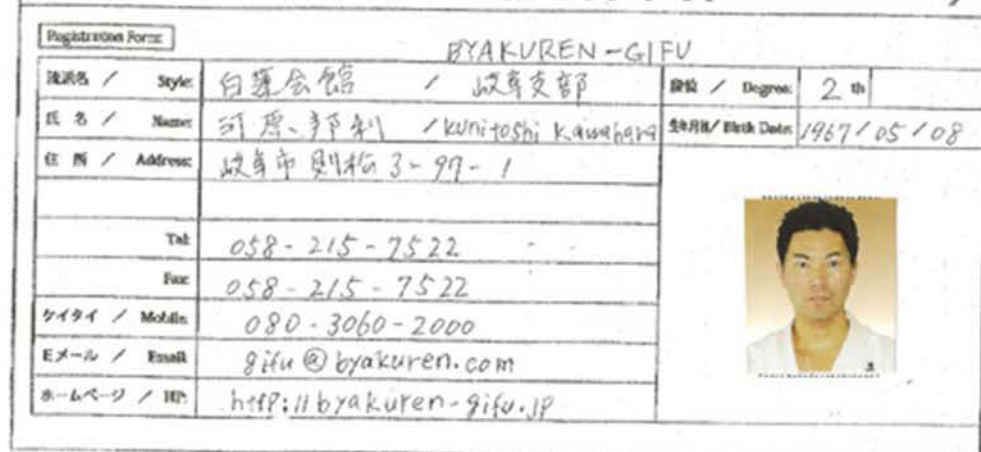 Registration Form:
BYAKUREN-GIFU
流派名 / Style: 白蓮会館 / 岐阜支部
段位 / Degree: 2 th
氏名 / Name: 河原 邦利 / kunitoshi kawahara
生年月日/ Birth Date: 1967/05/08
住所 / Address: 岐阜市則松3-97-1
Tel: 058-215-7522
Fax: 058-215-7522
ケイタイ / Mobile: 080-3060-2000
Eメール / Email: gifu@byakuren.com
ホームページ / HP: http://byakuren-gifu.jp